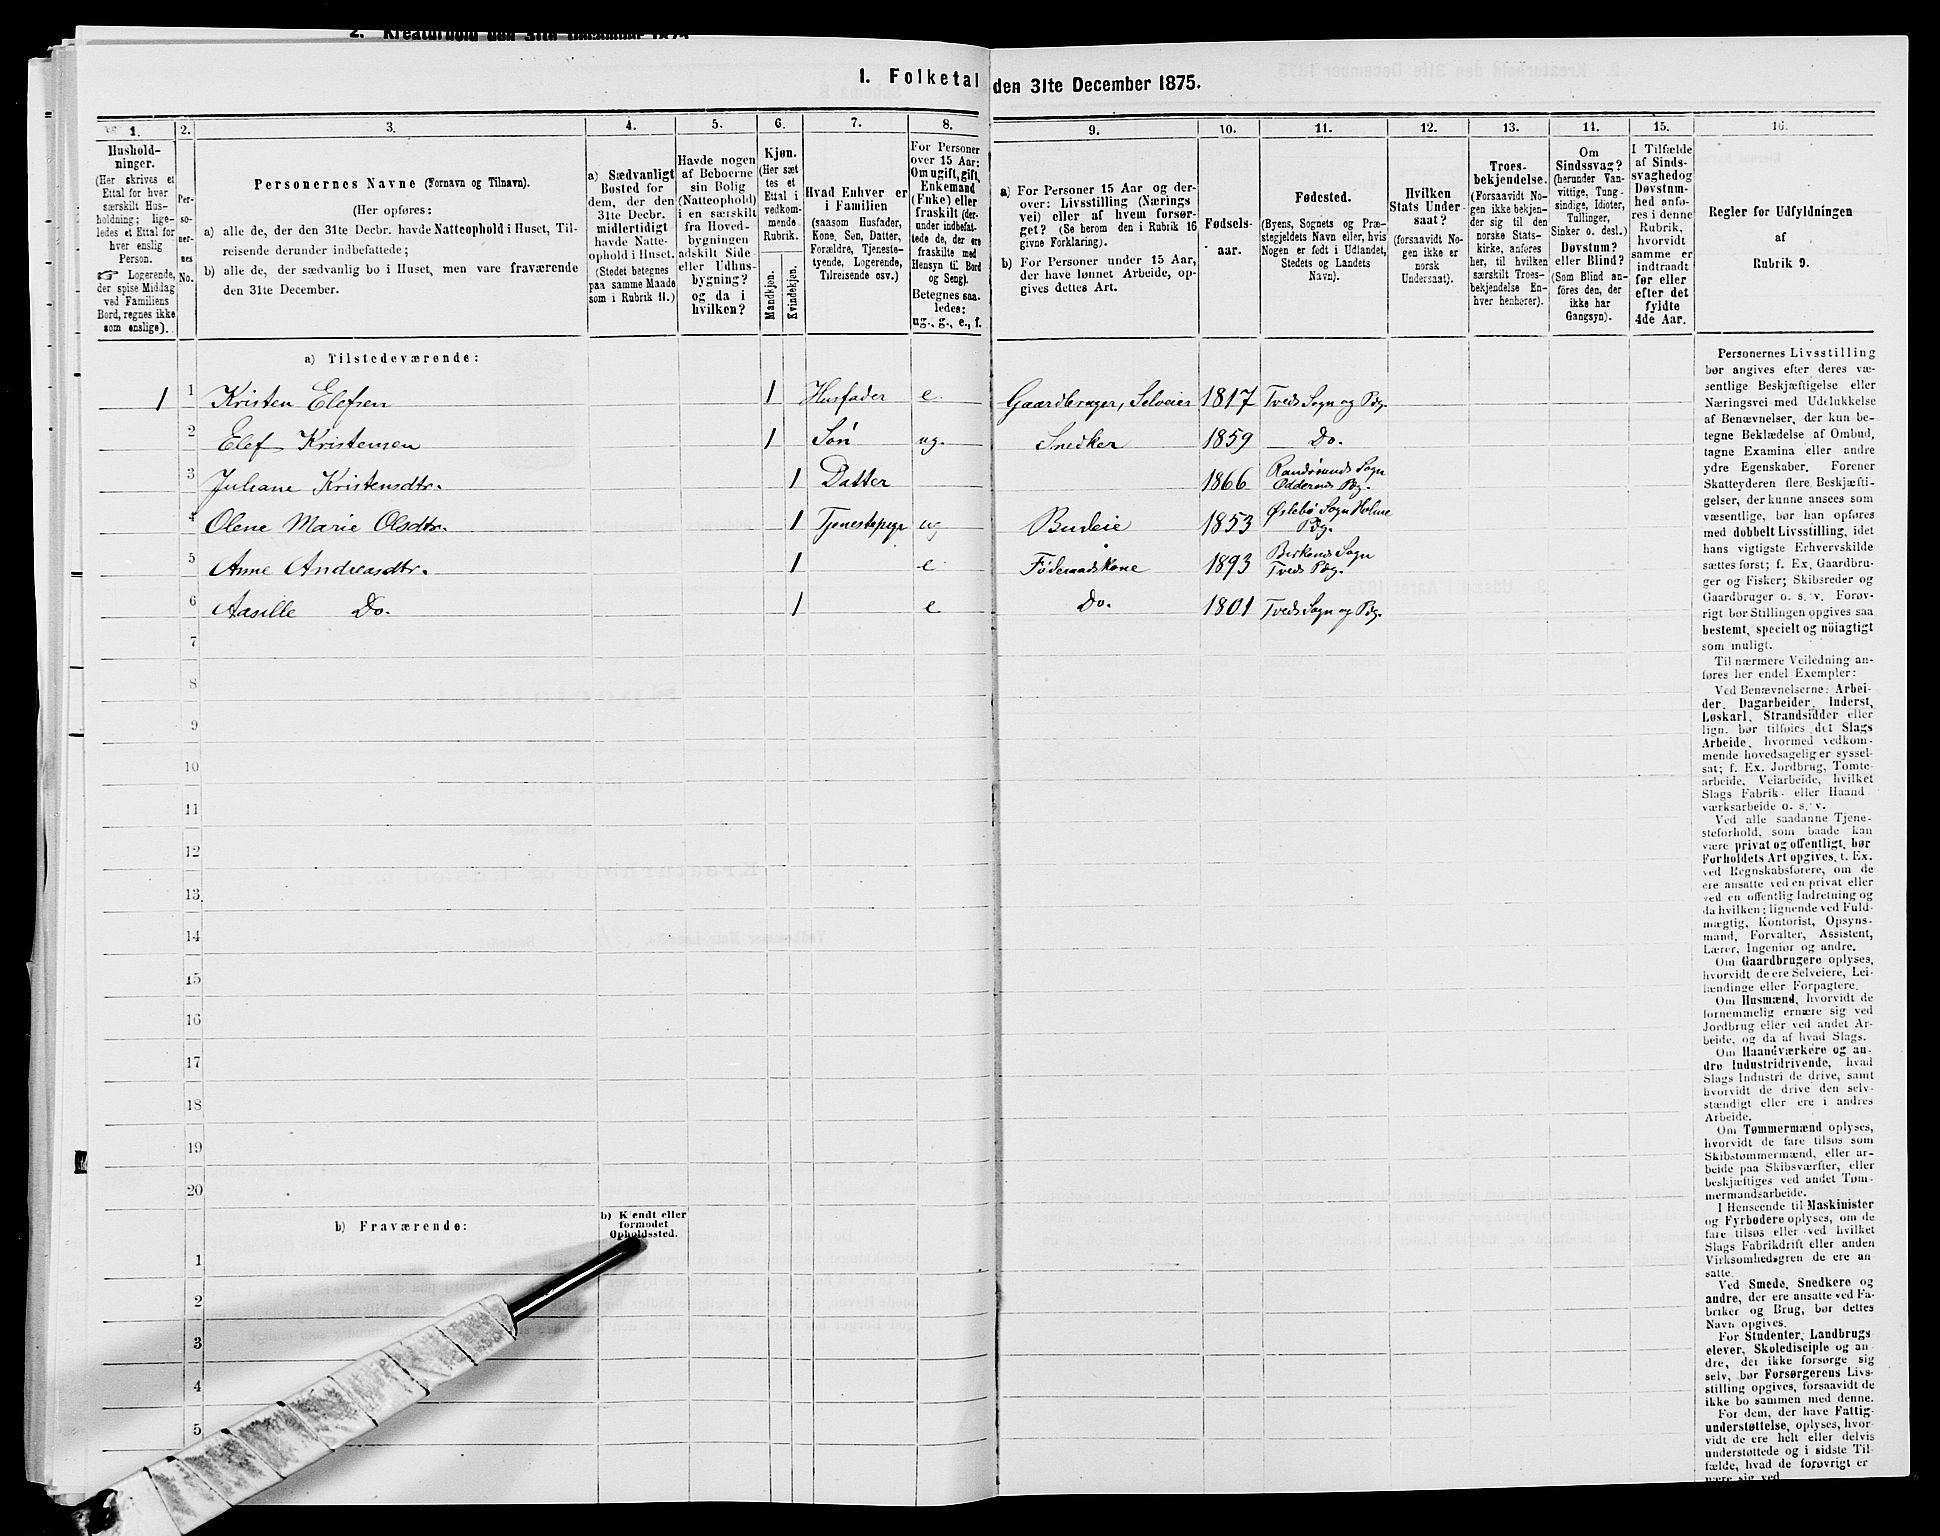 2. Kreaturhold den 31te December 1875
1. Folketal den 31te December 1875.
1. 2. 3. 4. 5. 6. 7. 8. 9. 10. 11. 12. 13. 14. 15. 16.
Hushold-
ninger.
(Her skrives et
Ettal for hver
særskilt Hus-
holdning; lige-
ledes et Ettal for
hver enslig
Person.
☞ Logerende,
der spise Middag
ved Familiens
Bord, regnes ikke
som enslige).
Per-
so-
ner-
nes
No.
Personernes Navne (Fornavn og Tilnavn).
(Her opføres:
a) alle de, der den 31te Decbr. havde Natteophold i Huset, Til-
reisende derunder indbefattede;
b) alle de, der sædvanlig bo i Huset, men vare fraværende
den 31te December.
a) Sædvanligt
Bosted for
dem, der den
31te Decbr.
midlertidigt
havde Natte-
ophold i Huset.
(Stedet betegnes
paa samme Maade
som i Rubrik 11.)
Havde nogen
af Beboerne
sin Bolig
(Natteophold)
i en særskilt
fra Hoved-
bygningen
adskilt Side-
eller Udhus-
bygning?
og da i
hvilken?
Kjøn.
(Her sæt
tes et
Ettal i
vedkom-
mende
Rubrik.
Mandkjøn.
Kvindekjøn.
Hvad Enhver er
i Familien
(saasom Husfader,
Kone, Søn, Datter,
Forældre, Tjeneste-
tyende, Logerende,
Tilreisende osv.)
For Personer
over 15 Aar:
Om ugift, gift,
Enkemand
(Enke) eller
fraskilt (der-
under indbefat-
tede de, der ere
fraskilte med
Hensyn til Bord
og Seng).
Betegnes saa-
ledes:
ug., g., e., f.
a) For Personer 15 Aar og der-
over: Livsstilling (Nærings
vei) eller af hvem forsør-
get? (Se herom den i Rubrik 16
givne Forklaring).
b) For Personer under 15 Aar,
der have lønnet Arbeide, op-
gives dettes Art.
Fødsels-
aar.
Fødested.
(Byens, Sognets og Præ-
stegjeldets Navn eller, hvis
Nogen er født i Udlandet,
Stedets og Landets
Navn).
Hvilken
Stats Under-
saat?
(forsaavidt No-
gen ikke er
norsk
Undersaat).
Troes-
bekjendelse.
(Forsaavidt No-
gen ikke bekjen-
der sig til den
norske Stats-
kirke, anføres
her, til hvilken
særskilt Troes-
bekjendelse En-
hver henhører).
Om
Sindssvag?
(herunder Van-
vittige, Tung-
sindige, Idioter,
Tullinger,
Sinker o. desl.)
Døvstum?
eller Blind?
(Som Blind an-
føres den, der
ikke har
Gangsyn).
I Tilfælde
af Sinds-
svaghed og
Døvstum-
hed anfø-
res i denne
Rubrik,
hvorvidt
samme er
indtraadt
før eller
efter det
fyldte
4de Aar.
Regler for Udfyldningen
af
Rubrik 9.
a) Tilstedeværende:
1 1 Kristen Elefsen 1 Husfader e. Gaardbruger, Selveier 1817 Tveds Sogn og Pdg.
2 Elef Kristensen 1 Søn ug. Snedker 1859 Do.
3 Juliane Kristensdtr. 1 Datter 1866 Randøsunds Sogn Oddernes Pdg.
4 Olene Marie Olsdtr. 1 Tjenestepige ug Budeie 1853 Øslebø Sogn Holme Pdg.
5 Anne Andreasdtr. 1 e Føderaadskone 1893 Birkenes Sogn Tveds Pdg.
6 Aasille Do. 1 e Do. 1801 Tveds Sogn og Pdg.
7
8
9
10
11
12
13
14
15
16
17
18
19
20
b) Fraværende:
b) Kjendt eller
formodet
Opholdssted.
1
2
3
4
5
Personernes Livsstilling
bør angives efter deres væ-
sentlige Beskjæftigelse eller
Næringsvei med Udelukkelse
af Benævnelser, der kun be-
tegne Beklædelse af Ombud,
tagne Examina eller andre
ydre Egenskaber. Forener
Skatteyderen flere Beskjæfti-
gelser, der kunne ansees som
væsentlige, bør han opføres
med dobbelt Livsstilling, idet
hans vigtigste Erhvervskilde
sættes først; f. Ex. Gaardbru-
ger og Fisker; Skibsreder og
Gaardbruger o. s. v. Forøv-
rigt bør Stillingen opgives saa
bestemt, specielt og nöiagtigt
som muligt.
Til nærmere Veiledning an-
føres her endel Exempler:
Ved Benævnelserne: Arbei-
der, Dagarbeider, Inderst,
Løskarl, Strandsidder eller
lign. bør tilføies det Slags
Arbeide, hvormed vedkom-
mende hovedsagelig er syssel-
sat; f. Ex. Jordbrug, Tomte-
arbeide, Veiarbeide, hvilket
Slags Fabrik- eller Haand
værksarbeide o. s. v.
Ved alle saadanne Tjene-
steforhold, som baade kan
være privat og offentligt, bør
Forholdets Art opgives, t. Ex.
ved Regnskabsførere, om de
ere ansatte ved en privat eller
ved en offentlig Indretning og
da hvilken; lignende ved Fuld-
mægtig, Kontorist, Opsyns-
mand, Forvalter, Assistent,
Lærer, Ingeniør og andre.
Om Gaardbrugere oplyses,
hvorvidt de ere Selveiere, Lei-
lændinge eller Forpagtere.
Om Husmænd, hvorvidt de
fornemmelig ernære sig ved
Jordbrug eller ved andet Ar-
beide, og da af hvad Slags.
Om Haandværkere og an-
dre Industridrivende, hvad
Slags Industri de drive, samt
hvorvidt de drive den selv-
stændigt eller ere i andres
Arbeide.
Om Tømmermænd oplyses,
hvorvidt de fare tilsøs som
Skibstømmermænd, eller ar-
beide paa Skibsværfter, eller
beskjæftiges ved andet Tøm-
mermandsarbeide.
I Henseende til Maskinister
og Fyrbødere oplyses, om de
fare tilsøs eller ved hvilket
Slags Fabrikdrift eller anden
Virksomhedsgren de ere an-
satte.
Ved Smede, Snedkere og
andre, der ere ansatte ved Fa-
briker og Brug, bør dettes
Navn opgives.
For Studenter, Landbrugs
elever, Skoledisciple og an-
dre, der ikke forsørge sig
selv, bør Forsørgerens Livs-
stilling opgives, forsaavidt de
ikke bo sammen med denne.
For dem, der have Fattig-
understøttelse, oplyses, hvor-
vidt de ere helt eller delvis
understøttede og i sidste Til-
fælde, hvad de forøvrigt er
nære sig ved